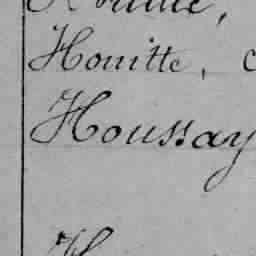 Houitte, c
Houssay